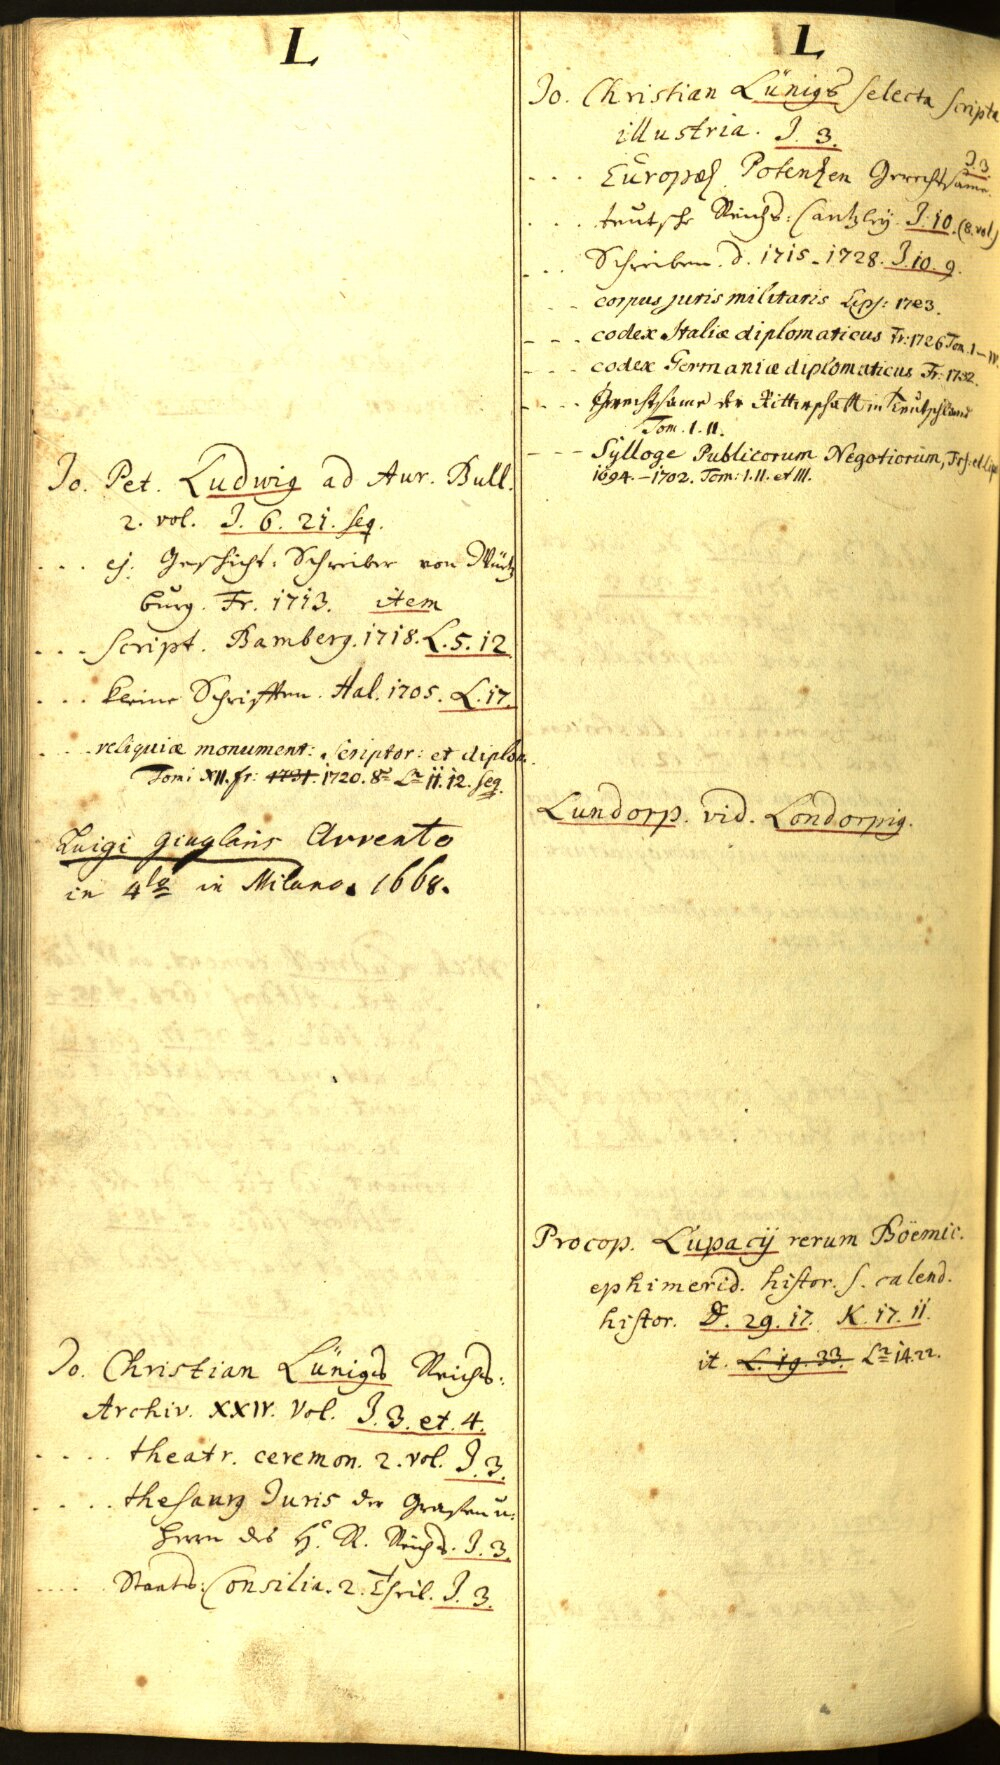 L
Jo. Pet. Ludwig ad Aur. Bull.
2. vol. J. 6. 21. seq.
. . . ej. Geschicht-Schreiber von Würtz
burg. Fr. 1713. item
. . . script. Bamberg. 1718. L. 5. 12.
. . . kleine Schrifften. Hal. 1705. L. 17.
. . . reliquiæ monument: scriptor: et diplom.
Tomi XII. fr: 1731. 1720. 8º Lª 11. 12. seq.
Luigi Giuglaris Avvento
in 4to in Milano. 1668.
Jo. Christian Lünigs Reichs-
Archiv. XXIV. Vol. J. 3. et. 4.
. . . . theatr. ceremon. 2. vol. J. 3.
. . . . thesaurg Juris der Grafen u.
Herrn des H. R. Reichs. J. 3.
. . . . Staats-Consilia. 2. Theil. J. 3.
L
Jo. Christian Lünigs selecta scripta
illustria. J. 3.
. . . Europæs. Potenzen Gerechtsame. J. 3.
. . . teutsche Reichs-Cantzley. J. 10. (8. vol)
. . . Schreiben. d. 1715-1728. J. 10. 9.
. . . corpus juris militaris Lips: 1723.
. . . codex Italiæ diplomaticus Fr: 1726 Tom. I-IV.
. . . codex Germaniæ diplomaticus Fr: 1732.
. . . . Gerechtsame der Ritterschafft in Teutschland
Tom. I. II.
- - - Sylloge Publicorum Negotiorum, Frf. et Lips
1694.-1702. Tom: I. II. et III.
Lundorp. vid. Londorpig.
Procop. Lupacij rerum Böemic.
ephimerid. histor. s. calend.
histor. D. 29. 17. K. 17. 11.
it. L. 19. 33. Lª 14. 22.